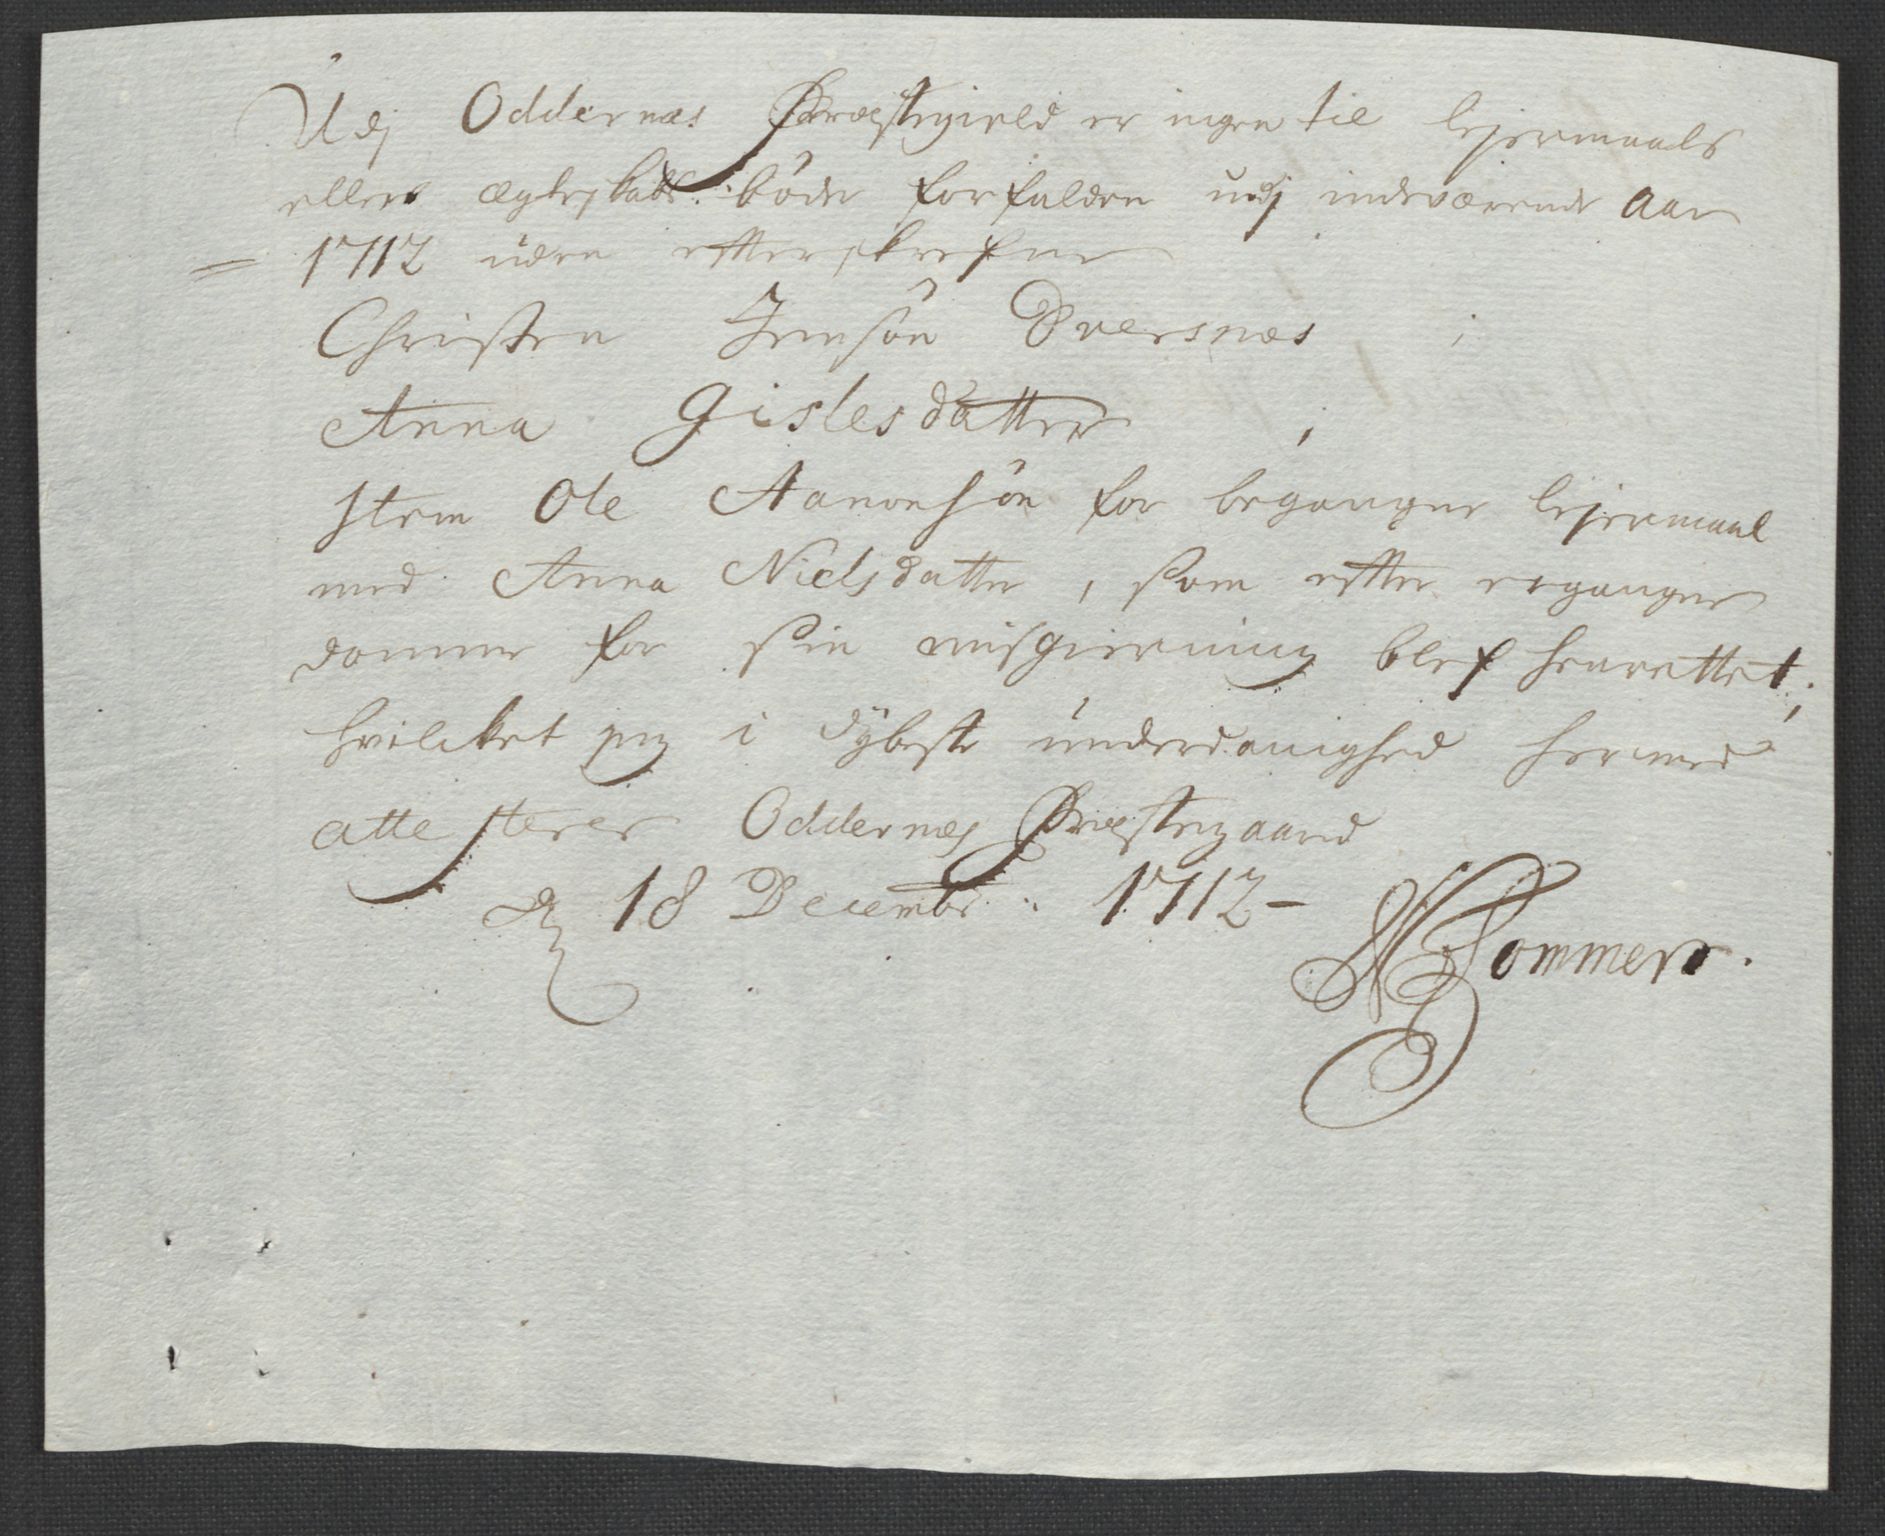 Udj Oddernæs Præstegield er ingen til lejermaals
eller ægteskabs bøde forfalden udj indeværende Aar
= 1712 uden efterskrefne
Christen Jensön Dversnæs ,
Anna Gislesdatter ,
Item Ole Aanonsön for begangne lejermaal
med Anna Nielsdatter, som efter ergangne
domme for sin misgierning blef henrettet;
hvilcket jeg i dybeste underdanighed hermed
attesterer Oddernæs Præstegaard
d 18 Decembr: 1712-
Sommer.